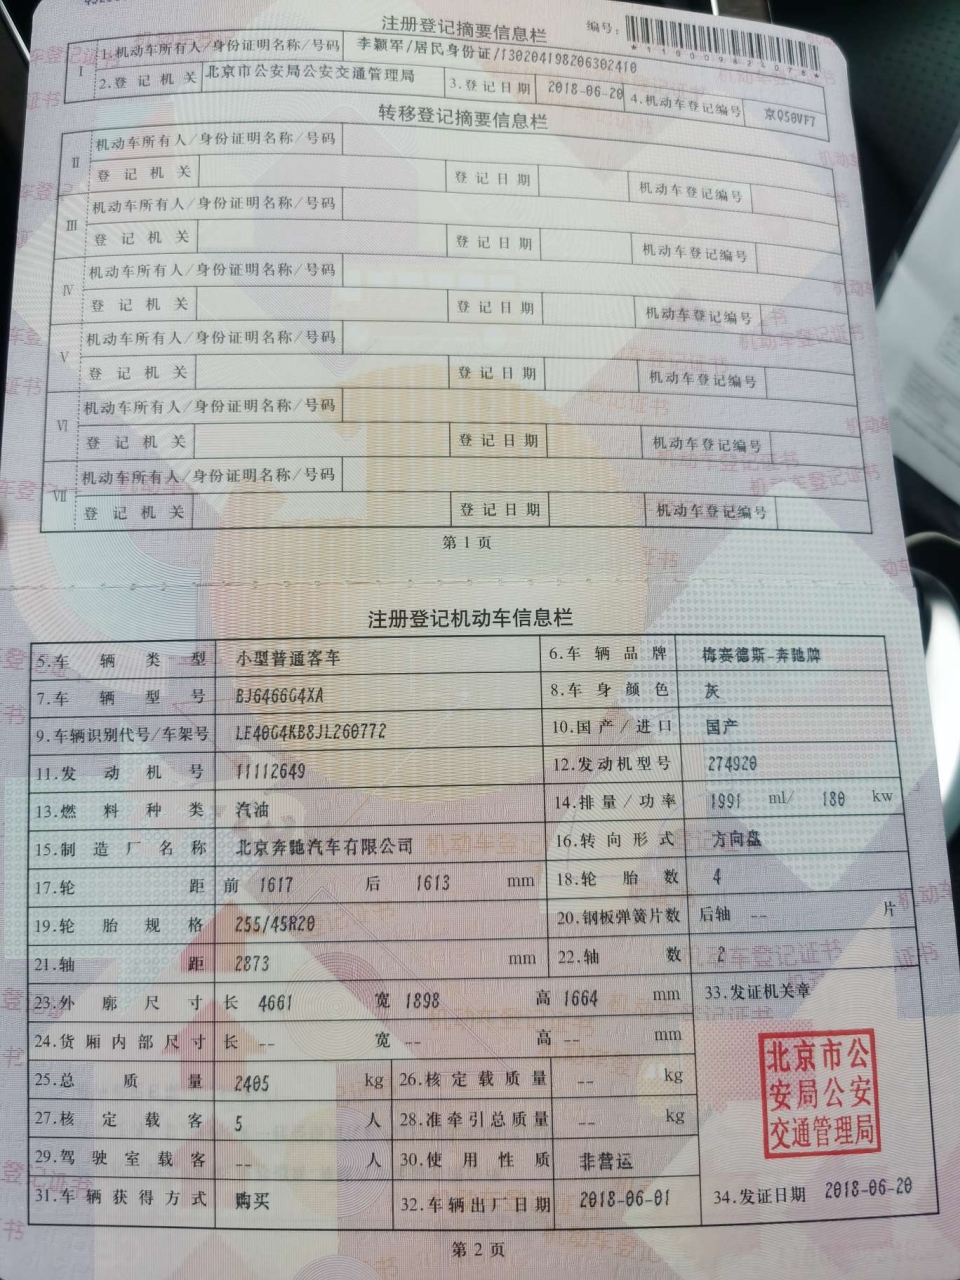 注册登记摘要信息栏
编号:
*110009825078*
I 1.机动车所有人/身份证明名称/号码 李颖军/居民身份证/130204198206302410
2.登记机关 北京市公安局公安交通管理局 3.登记日期 2018-06-20 4.机动车登记编号 京Q50VF7
转移登记摘要信息栏
II 机动车所有人/身份证明名称/号码
登记机关 登记日期 机动车登记编号
III 机动车所有人/身份证明名称/号码
登记机关 登记日期 机动车登记编号
IV 机动车所有人/身份证明名称/号码
登记机关 登记日期 机动车登记编号
V 机动车所有人/身份证明名称/号码
登记机关 登记日期 机动车登记编号
VI 机动车所有人/身份证明名称/号码
登记机关 登记日期 机动车登记编号
VII 机动车所有人/身份证明名称/号码
登记机关 登记日期 机动车登记编号
第 1 页
注册登记机动车信息栏
5.车辆类型 小型普通客车 6.车辆品牌 梅赛德斯-奔驰牌
7.车辆型号 BJ6466G4XA 8.车身颜色 灰
9.车辆识别代号/车架号 LE40G4KB8JL260772 10.国产/进口 国产
11.发动机号 11112649 12.发动机型号 274920
13.燃料种类 汽油 14.排量/功率 1991 ml/ 180 kw
15.制造厂名称 北京奔驰汽车有限公司 16.转向形式 方向盘
17.轮距 前 1617 后 1613 mm 18.轮胎数 4
19.轮胎规格 255/45R20 20.钢板弹簧片数 后轴 -- 片
21.轴距 2873 mm 22.轴数 2
23.外廓尺寸 长 4661 宽 1898 高 1664 mm 33.发证机关章
24.货厢内部尺寸 长 -- 宽 -- 高 -- mm
25.总质量 2405 kg 26.核定载质量 -- kg
27.核定载客 5 人 28.准牵引总质量 -- kg
北京市公
安局公安
交通管理局
29.驾驶室载客 -- 人 30.使用性质 非营运
31.车辆获得方式 购买 32.车辆出厂日期 2018-06-01 34.发证日期 2018-06-20
第 2 页